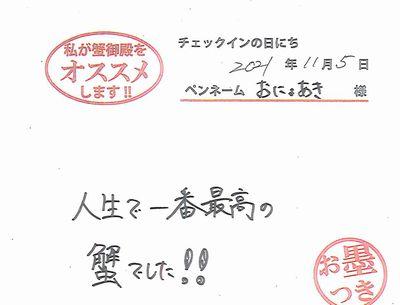 私が蟹御殿を
オススメ
します!!
チェックインの日にち
2021 年 11 月 5 日
ペンネーム おにょあき 様
人生で一番最高の
蟹でした!!
お墨
つき